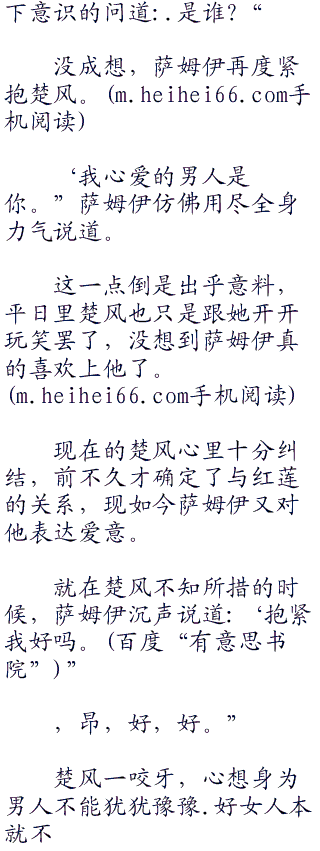 下意识的问道:.是谁?“
没成想，萨姆伊再度紧
抱楚风。(m.heihei66.com手
机阅读)
‘我心爱的男人是
你。”萨姆伊仿佛用尽全身
力气说道。
这一点倒是出乎意料，
平日里楚风也只是跟她开开
玩笑罢了，没想到萨姆伊真
的喜欢上他了。
(m.heihei66.com手机阅读)
现在的楚风心里十分纠
结，前不久才确定了与红莲
的关系，现如今萨姆伊又对
他表达爱意。
就在楚风不知所措的时
候，萨姆伊沉声说道:‘抱紧
我好吗。(百度“有意思书
院”)”
，昂，好，好。”
楚风一咬牙，心想身为
男人不能犹犹豫豫.好女人本
就不